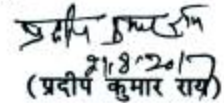 प्रदीप कुमार राय
21.8.2017
(प्रदीप कुमार राय)